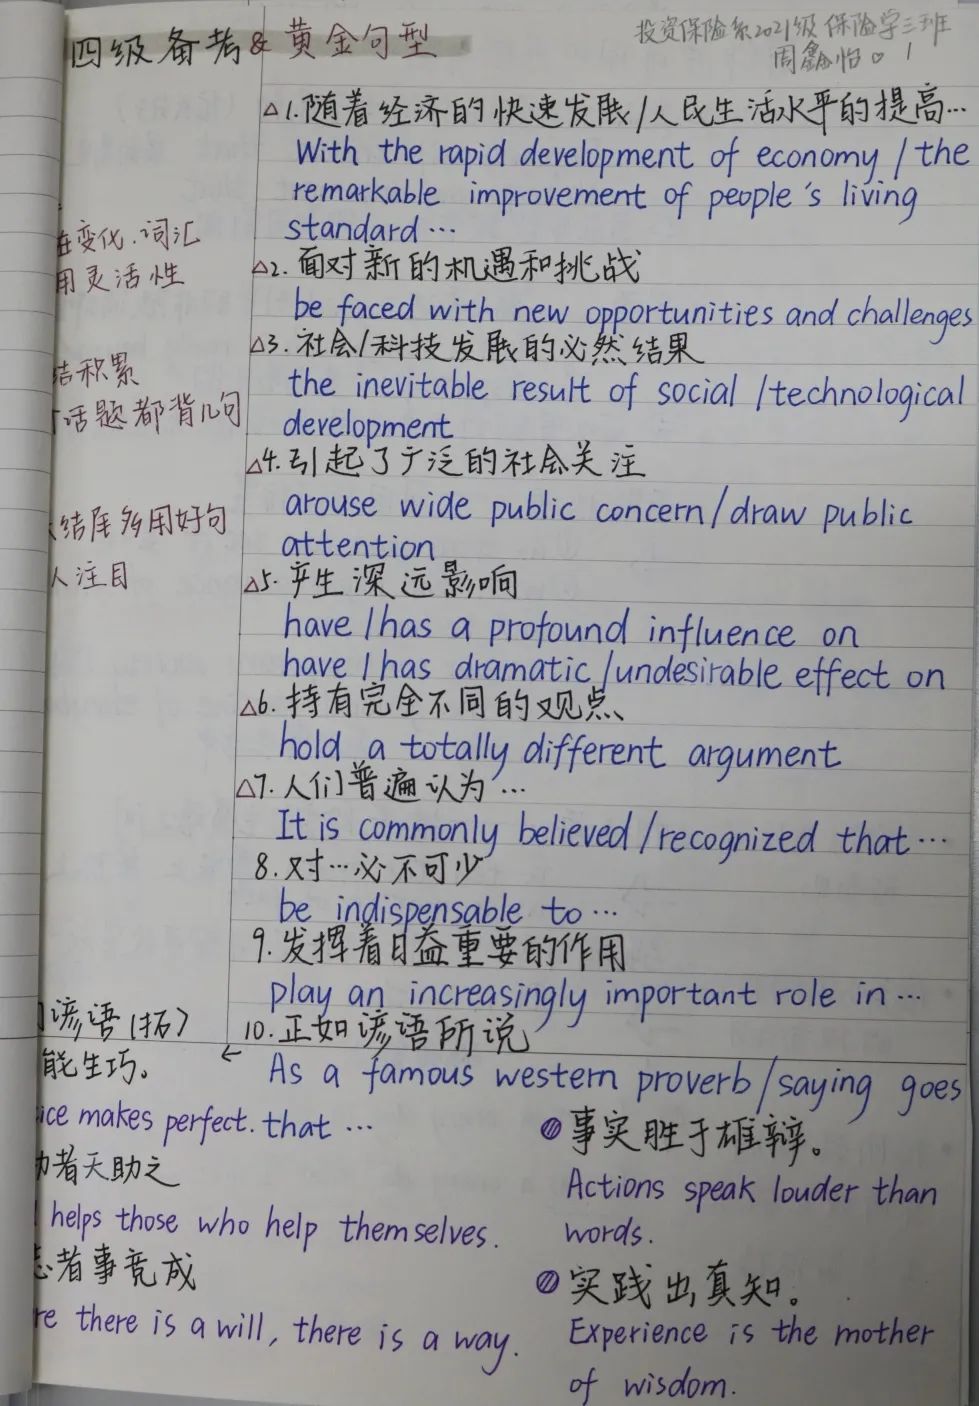 四级备考 & 黄金句型
投资保险系2021级保险学三班
周鑫怡 1
△1.随着经济的快速发展/人民生活水平的提高…
With the rapid development of economy / the
remarkable improvement of people's living
standard…
△2.面对新的机遇和挑战
be faced with new opportunities and challenges
△3.社会/科技发展的必然结果
the inevitable result of social /technological
development
△4.引起了广泛的社会关注
arouse wide public concern/draw public
attention
△5.产生深远影响
have/has a profound influence on
have/has dramatic/undesirable effect on
△6.持有完全不同的观点
hold a totally different argument
△7.人们普遍认为…
It is commonly believed/recognized that…
8.对…必不可少
be indispensable to…
9.发挥着日益重要的作用
play an increasingly important role in…
10.正如谚语所说
As a famous western proverb/saying goes
that…
变化.词汇
用灵活性
结积累
话题都背几句
结尾多用好句
人注目
谚语(拓) ←
能生巧。
ice makes perfect.
助者天助之
helps those who help themselves.
志者事竟成
re there is a will, there is a way.
事实胜于雄辩。
Actions speak louder than
words.
实践出真知。
Experience is the mother
of wisdom.